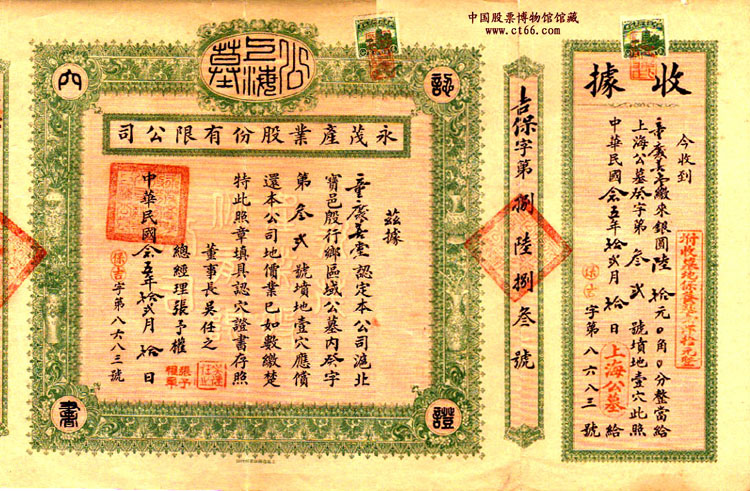 中国股票博物馆馆藏
www.ct66.com
收據
今收到
善堂繳來銀圓陸拾元0角0分整當給
上海公墓癸字第叁貳號墳地壹穴此照
中華民國 五年拾貳月拾日 上海公墓給
保吉字第八六八三號
吉保字第捌陸捌叁號
上海公墓
認穴證書
永茂產業股份有限公司
茲據
善堂認定本公司滬北
寶邑殷行鄉區域公墓內癸字
第叁貳號墳地壹穴應償
還本公司地價業已如數繳楚
特此照章填具認穴證書存照
董事長吳任之
總經理張予權
中華民國 五年拾貳月拾日
保吉字第八六八三號